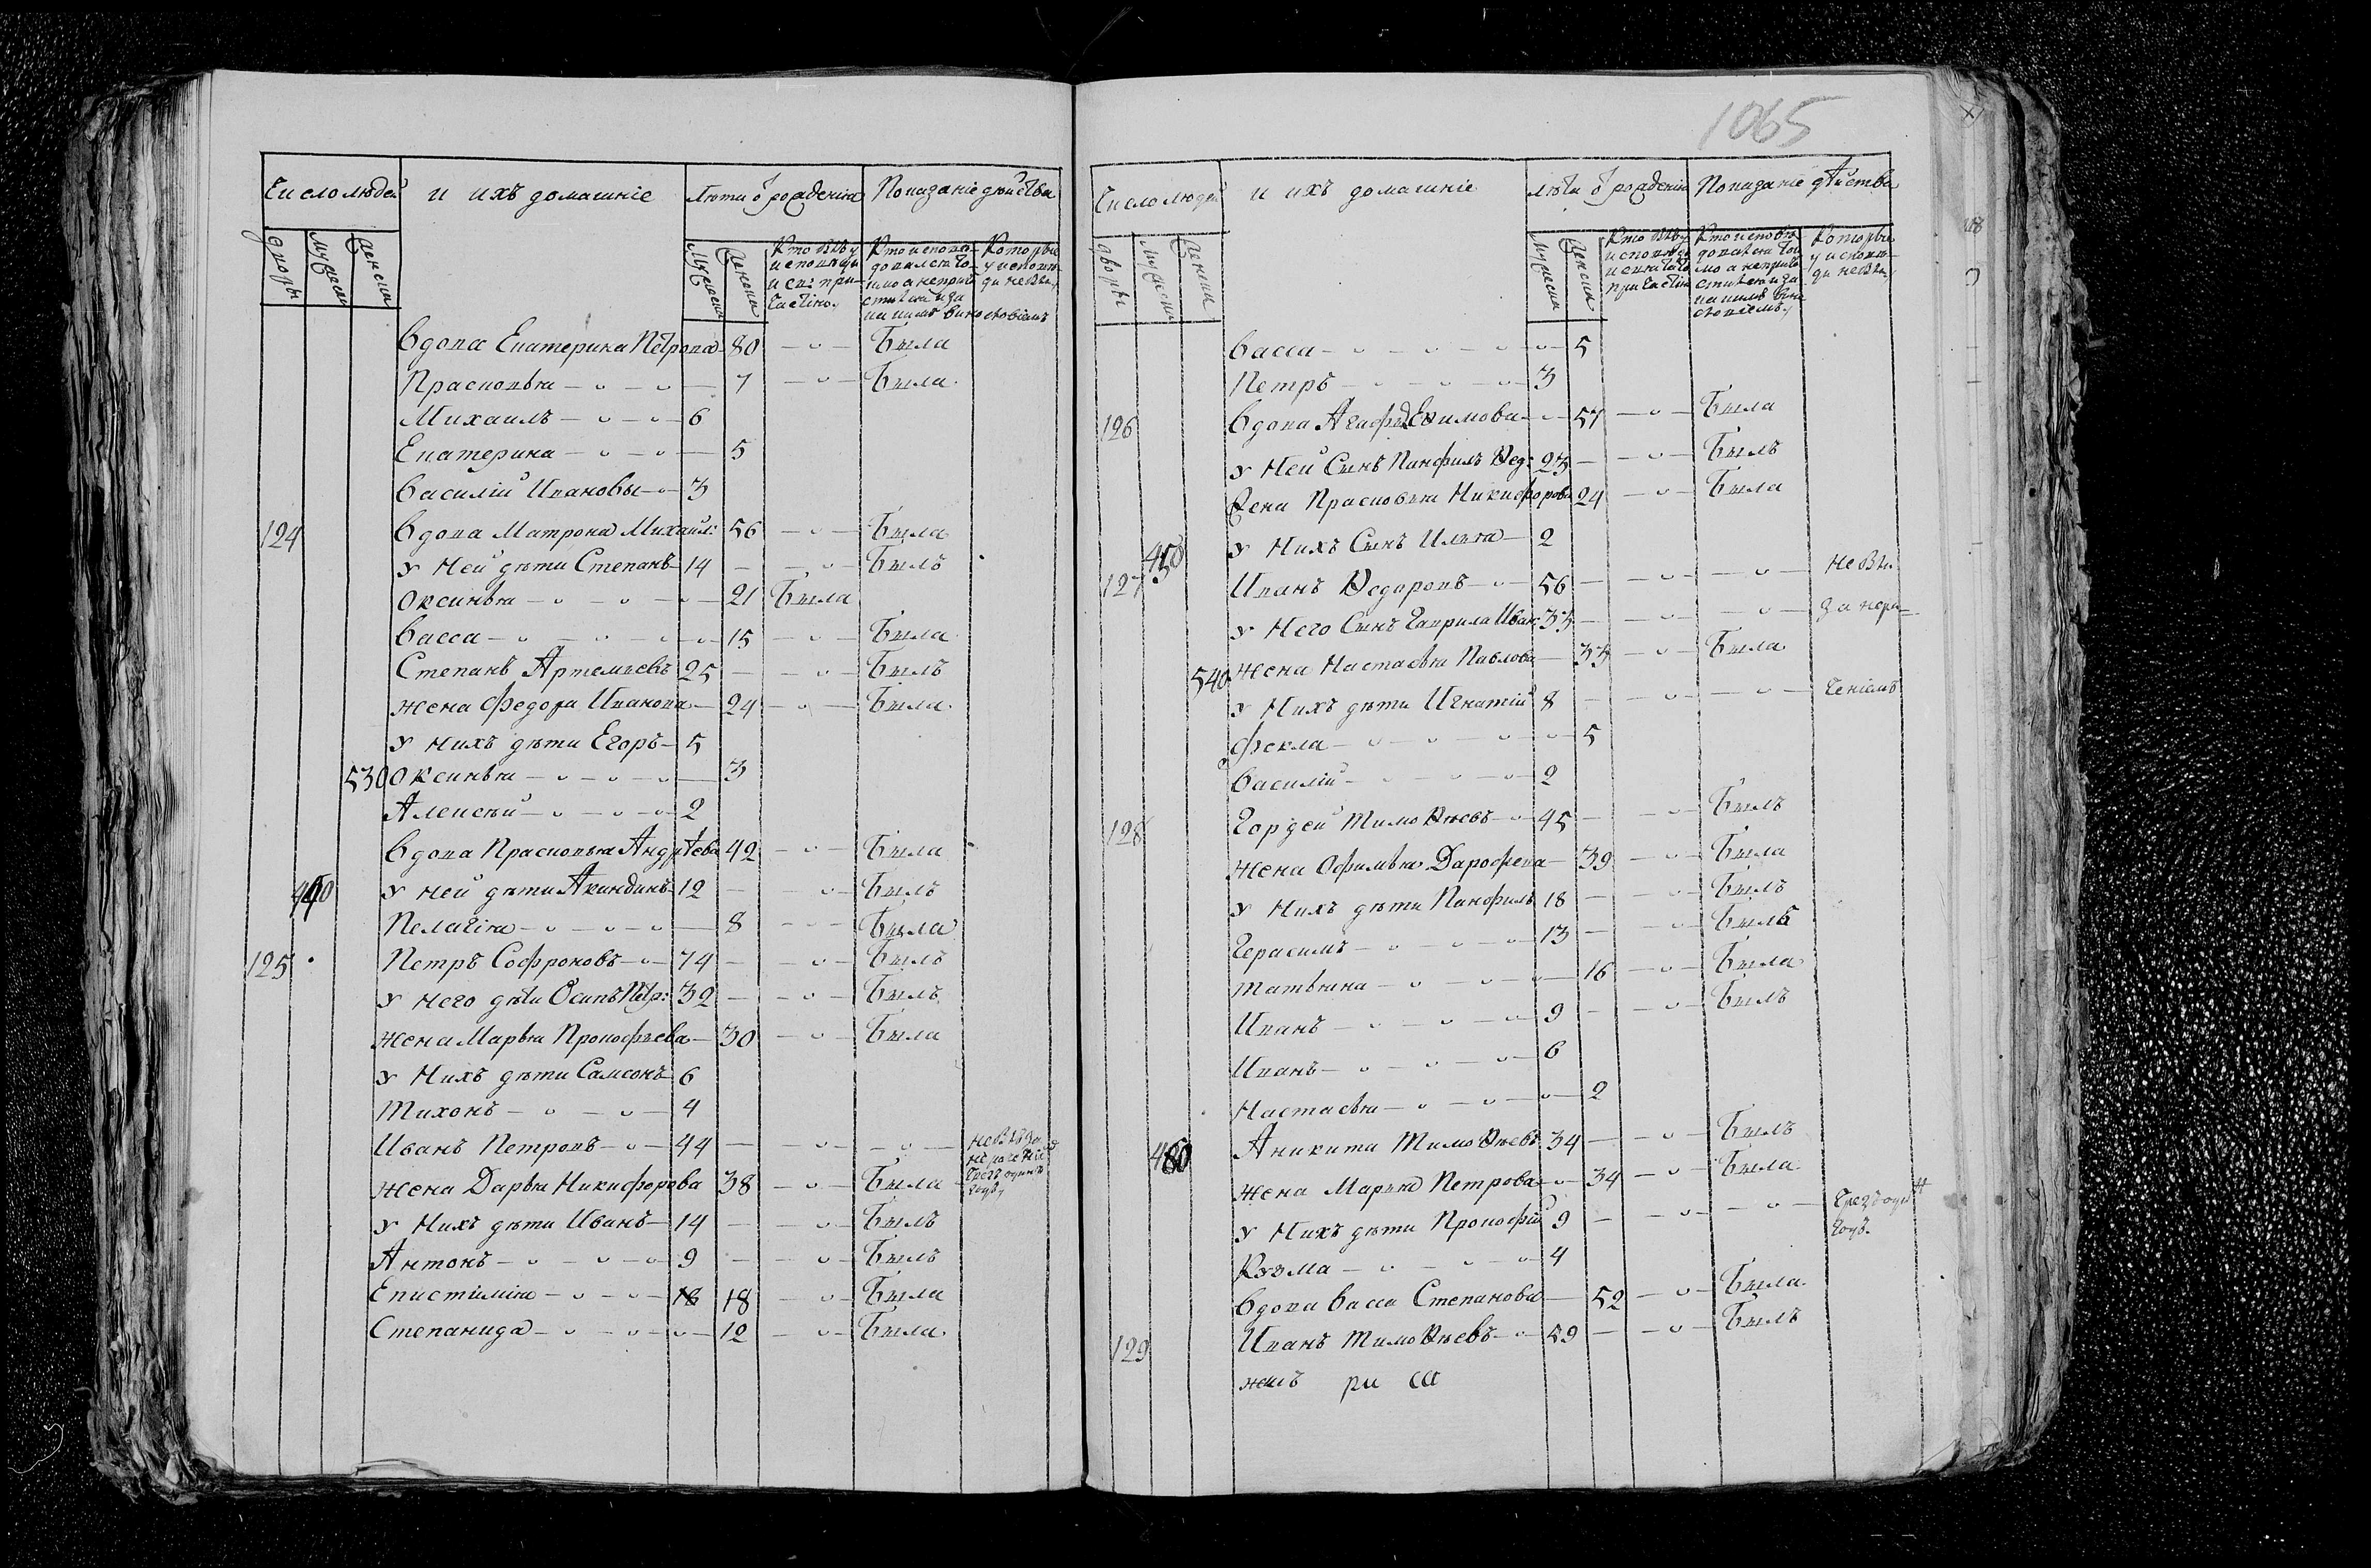 Число людей и ихъ домашніе Лѣта ѿ рожденія Показаніе дѣйства
дворы мужеска женска мужеска женска Кто былъ у исповѣди и св: причастіѧ Кто исповѣдовался токмо а не причастился и за какимъ винословіемъ Которые у исповѣди не были
Вдова Екатерина Петрова 80 Была
Прасковья 7 Была
Михаилъ 6
Екатерина 5
Василій Ивановы 3
124 Вдова Матрона Михайл: 56 Была
У Ней дѣти Степанъ 14 Былъ
Оксинья 21 Была
Васса 15 Была
Степанъ Артемьевъ 25 Былъ
Жена Федора Иванова 24 Была
У Нихъ дѣти Егоръ 5
530 Оксинья 3
Алексѣй 2
Вдова Прасковья Андрѣева 42 Была
У Ней дѣти Акиндинъ 12 Былъ
Пелагіѧ 8 Была
125 Петръ Софроновъ 74 Былъ
У Него дѣти Осипъ Петр: 32 Былъ
Жена Марья Прокофьева 30 Была
У Нихъ дѣти Самсонъ 6
Тихонъ 4
Иванъ Петровъ 44
Жена Дарья Никифорова 38 Была
У Нихъ дѣти Иванъ 14 Былъ
Антонъ 9 Былъ
Епистиміѧ 18 18 Была
Степанида 12 Была
1065
Число людей и ихъ домашніе лѣта ѿ рожденія Показаніе дѣйства
дворы мужеска женска мужеска женска Кто былъ у исповѣди и св: таинъ причастіѧ Кто исповѣдовался токмо а не причастился и за какимъ винословіемъ Которые у исповѣди не были
Васса 5
Петръ 3
126 Вдова Агафья Екимова 57 Была
У Ней Сынъ Панфилъ Ѳед: 23 Былъ
Жена Прасковья Никифорова 24 Была
450 У Нихъ Сынъ Илья 2
127 Иванъ Ѳедоровъ 56 не бы
У Него Сынъ Гаврила Иван: 33 за нера
540 Жена Настасья Павлова 33 Была
У Нихъ дѣти Игнатій 8 ченіемъ
Фекла 5
Василій 2
128 Гордей Тимоѳѣевъ 45 Былъ
Жена Офимья Дарофеева 39 Была
У Нихъ дѣти Панфилъ 18 Былъ
Герасимъ 13 Былъ
Татьяна 16 Была
Иванъ 9 Былъ
Иванъ 6
Настасья 2
Аникита Тимоѳѣевъ 34 Былъ
Жена Марья Петрова 34 Была
У Нихъ дѣти Прокофій 9
Кузма 4
Вдова Васса Степанова 52 Была
129 Иванъ Тимоѳѣевъ 59 Былъ